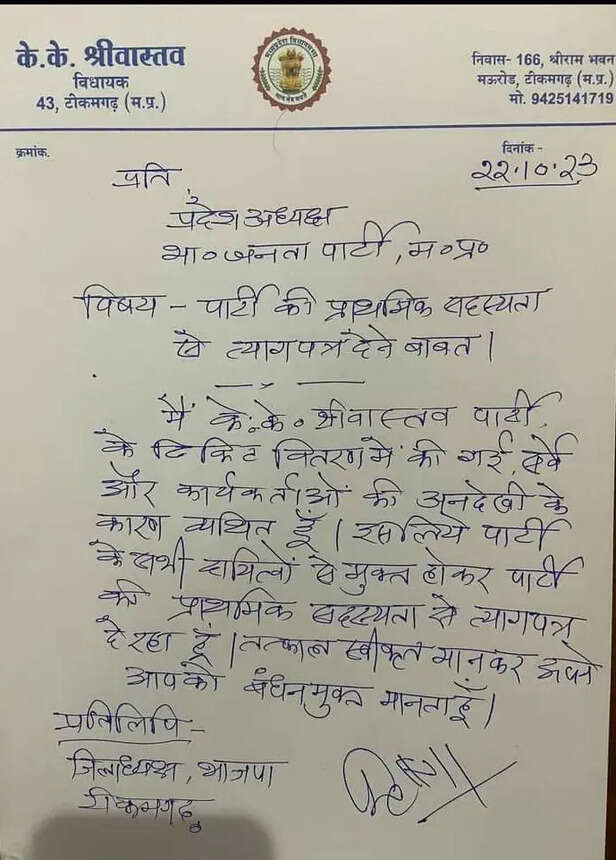 के.के. श्रीवास्तव
विधायक
43, टीकमगढ़ (म.प्र.)
निवास- 166, श्रीराम भवन
मऊरोड, टीकमगढ़ (म.प्र.)
मो. 9425141719
क्रमांक.
दिनांक -
22.10.23
प्रति,
प्रदेश अध्यक्ष
भा० जनता पार्टी, म० प्र०
विषय - पार्टी की प्राथमिक सदस्यता
से त्यागपत्र देने बावत।
मैं के. के. श्रीवास्तव पार्टी
के टिकिट वितरण में की गई सर्वे
और कार्यकर्ताओं की अनदेखी के
कारण व्यथित हूँ। इसलिये पार्टी
के सभी दायित्वों से मुक्त होकर पार्टी
की प्राथमिक सदस्यता से त्यागपत्र
दे रहा हूं। तत्काल स्वीकृत मानकर अपने
आपको बंधनमुक्त मानता हूँ।
प्रतिलिपि -
जिलाध्यक्ष, भाजपा
टीकमगढ़